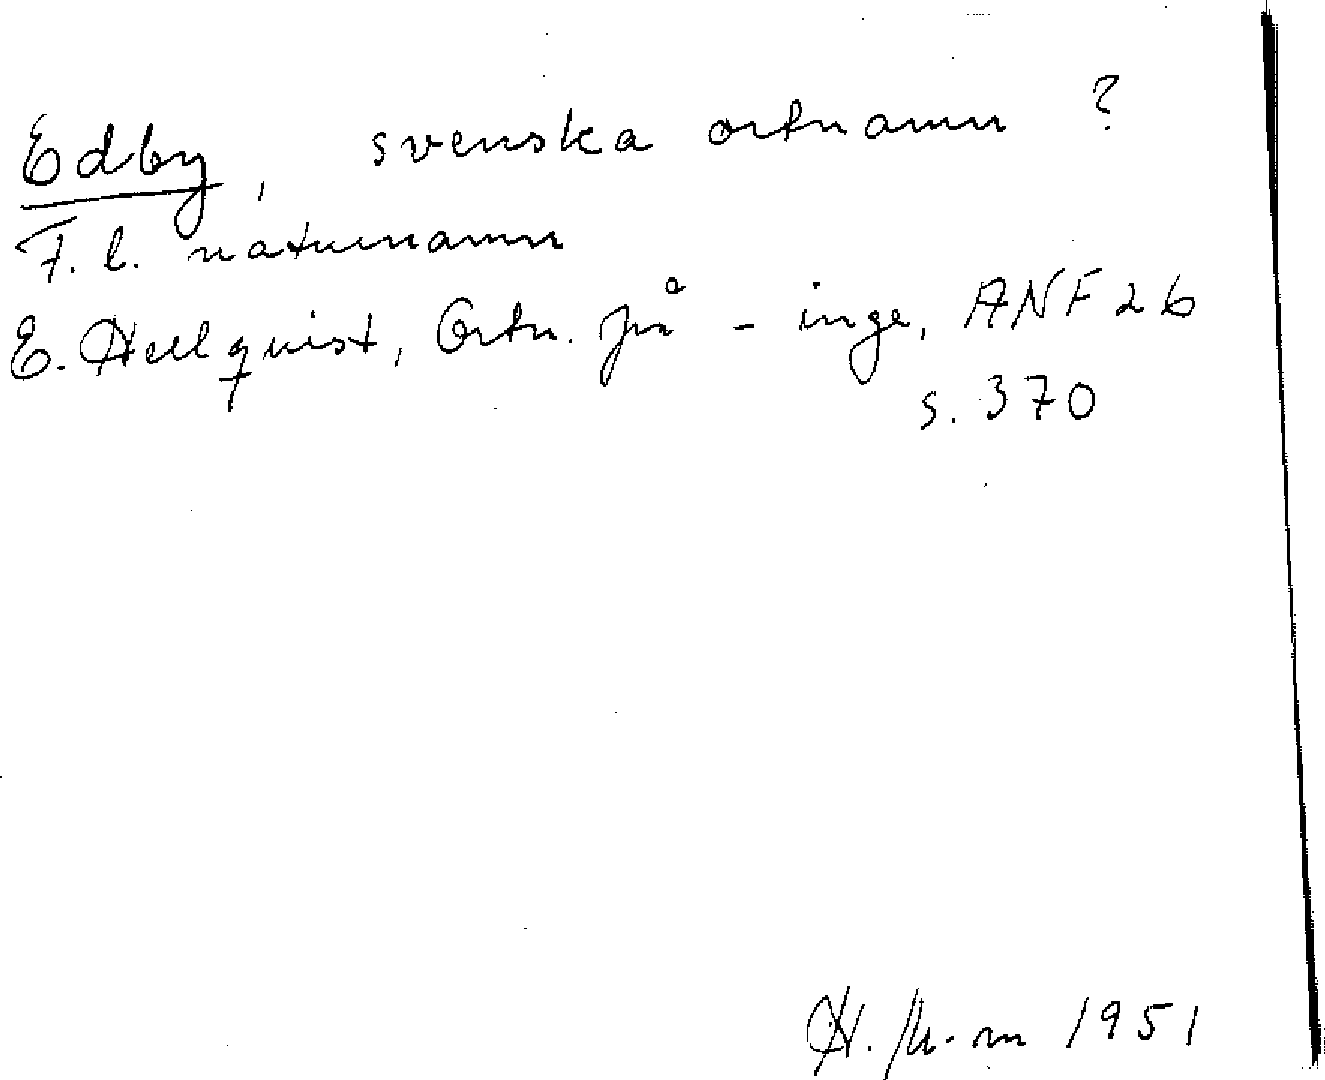 Edby, svenska ortnamn ?
F. l. naturnamn
E. Hellquist, Ortn. på - inge, ANF 26
s. 370
H. 1951